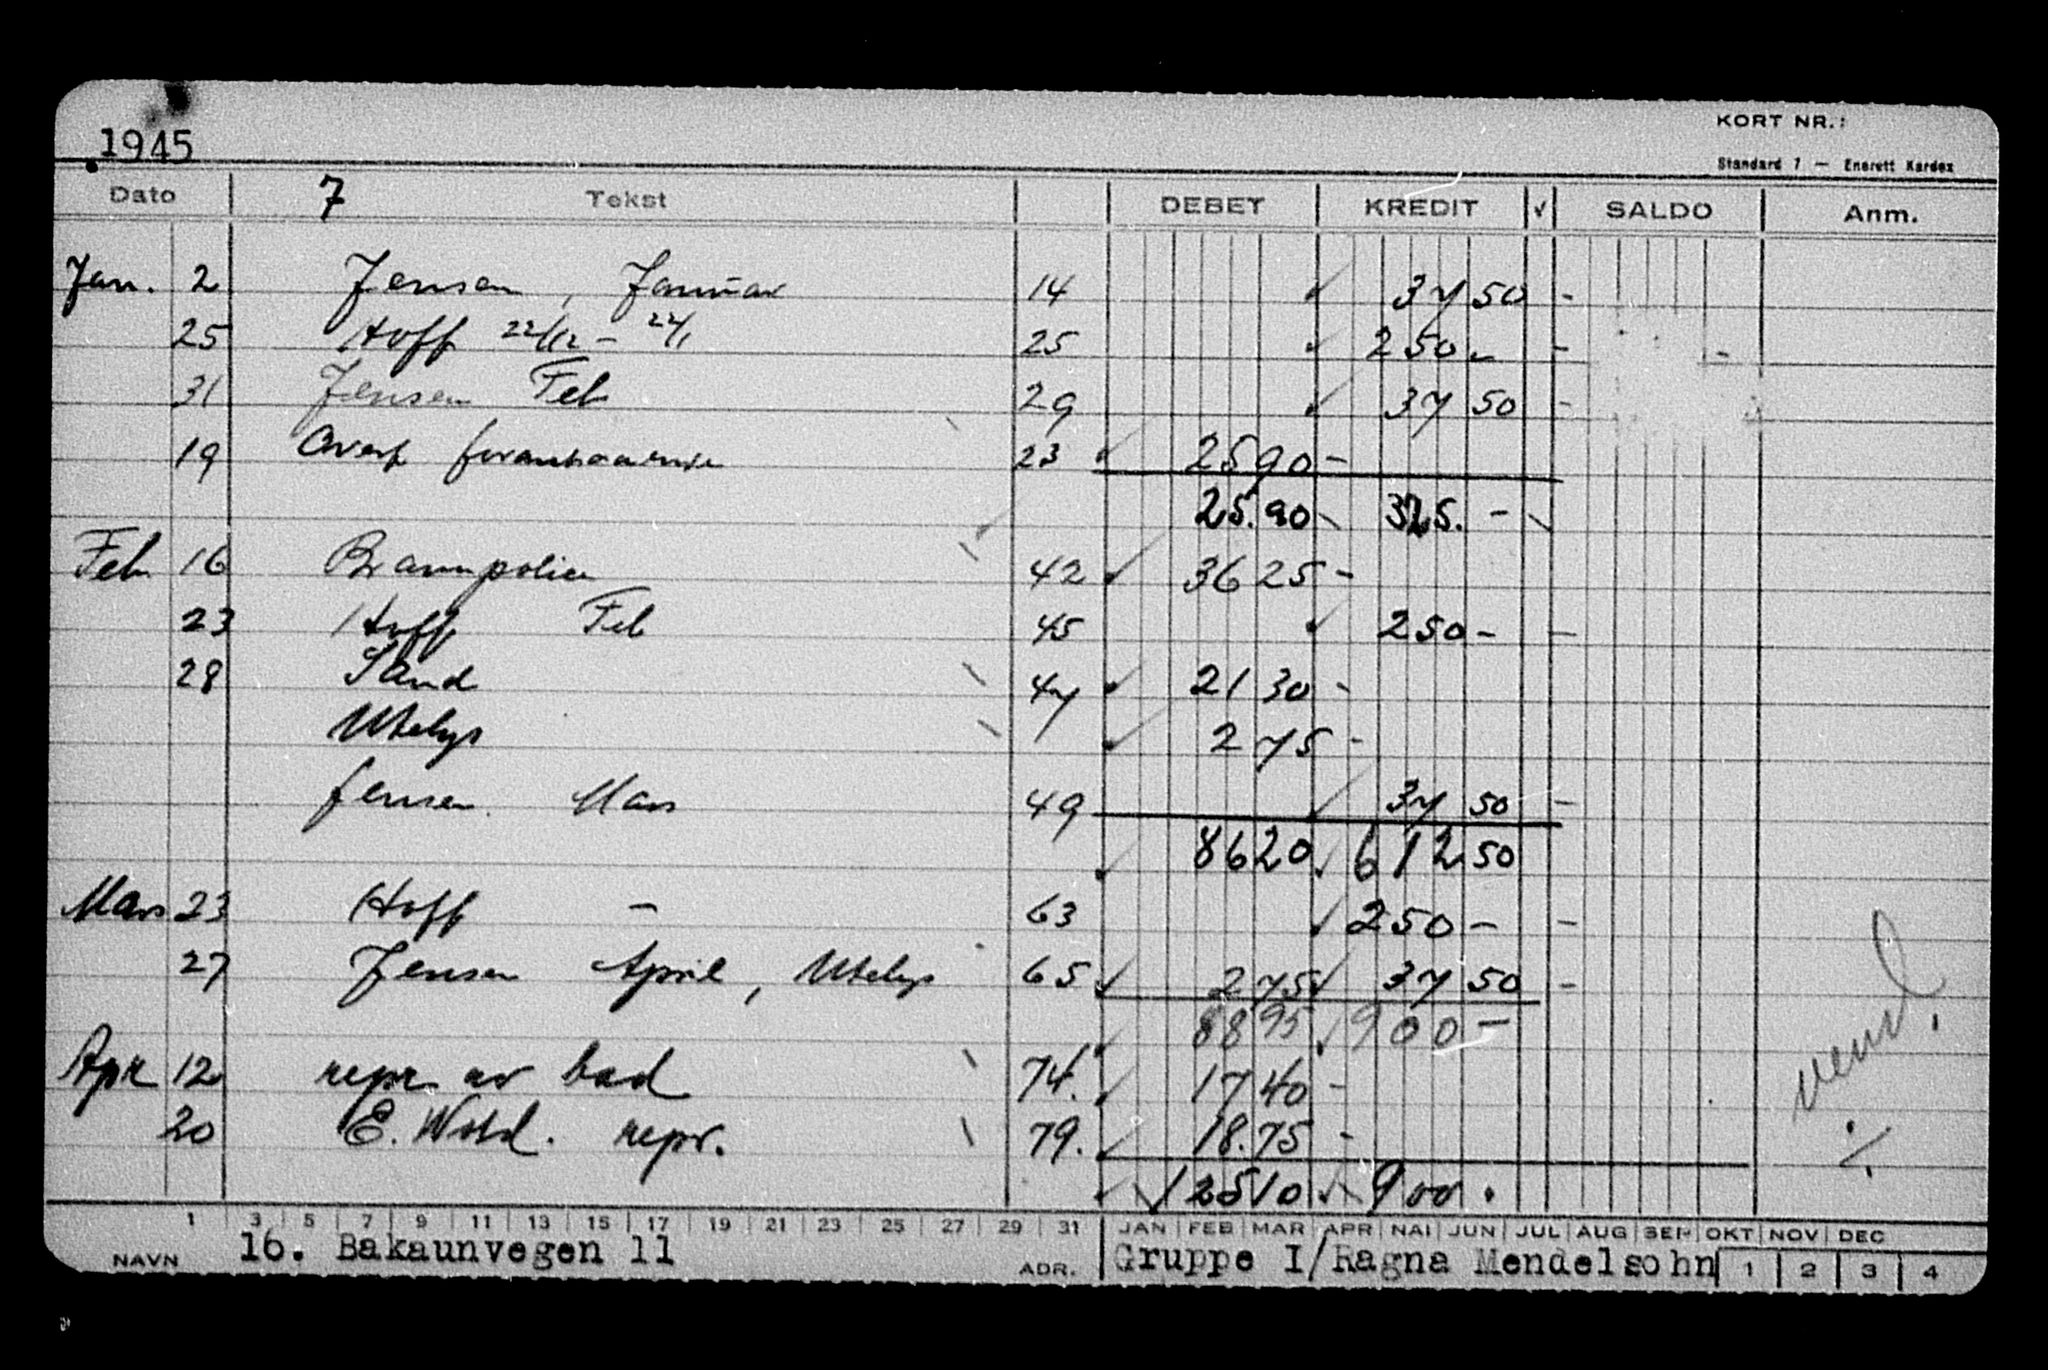 1945
KORT NR.:
Standard 7 — Enerett Kardex
Dato 7 Tekst DEBET KREDIT √ SALDO Anm.
Jan. 2 Jensen, Januar 14 37 50 -
25 Hoff 22/12 - 22/1 25 250 - -
31 Jensen Feb 29 37 50 -
19 23 25 90 -
25.90 325. -
Feb 16 Brannpolise 42 36 25 -
23 Hoff Feb 45 250 - -
28 Sand 47 21 30 -
Utelys 2 75 -
Jensen. Mars 49 37 50 -
86 20 612 50
Mars 23 Hoff - 63 250 - -
27 Jensen April, Utelys 65 2 75 37 50 -
88 95 900 -
Apr 12 repr av bad 74. 17 40 -
20 E. Wold. repr. 79. 18.75 -
125 10 900.
vend!
1 3 5 7 9 11 13 15 17 19 21 23 25 27 29 31 JAN FEB MAR APR MAI JUN JUL AUG SEP OKT NOV DEC
NAVN 16. Bakaunvegen 11 ADR. Gruppe I/Ragna Mendelsohn 1 2 3 4